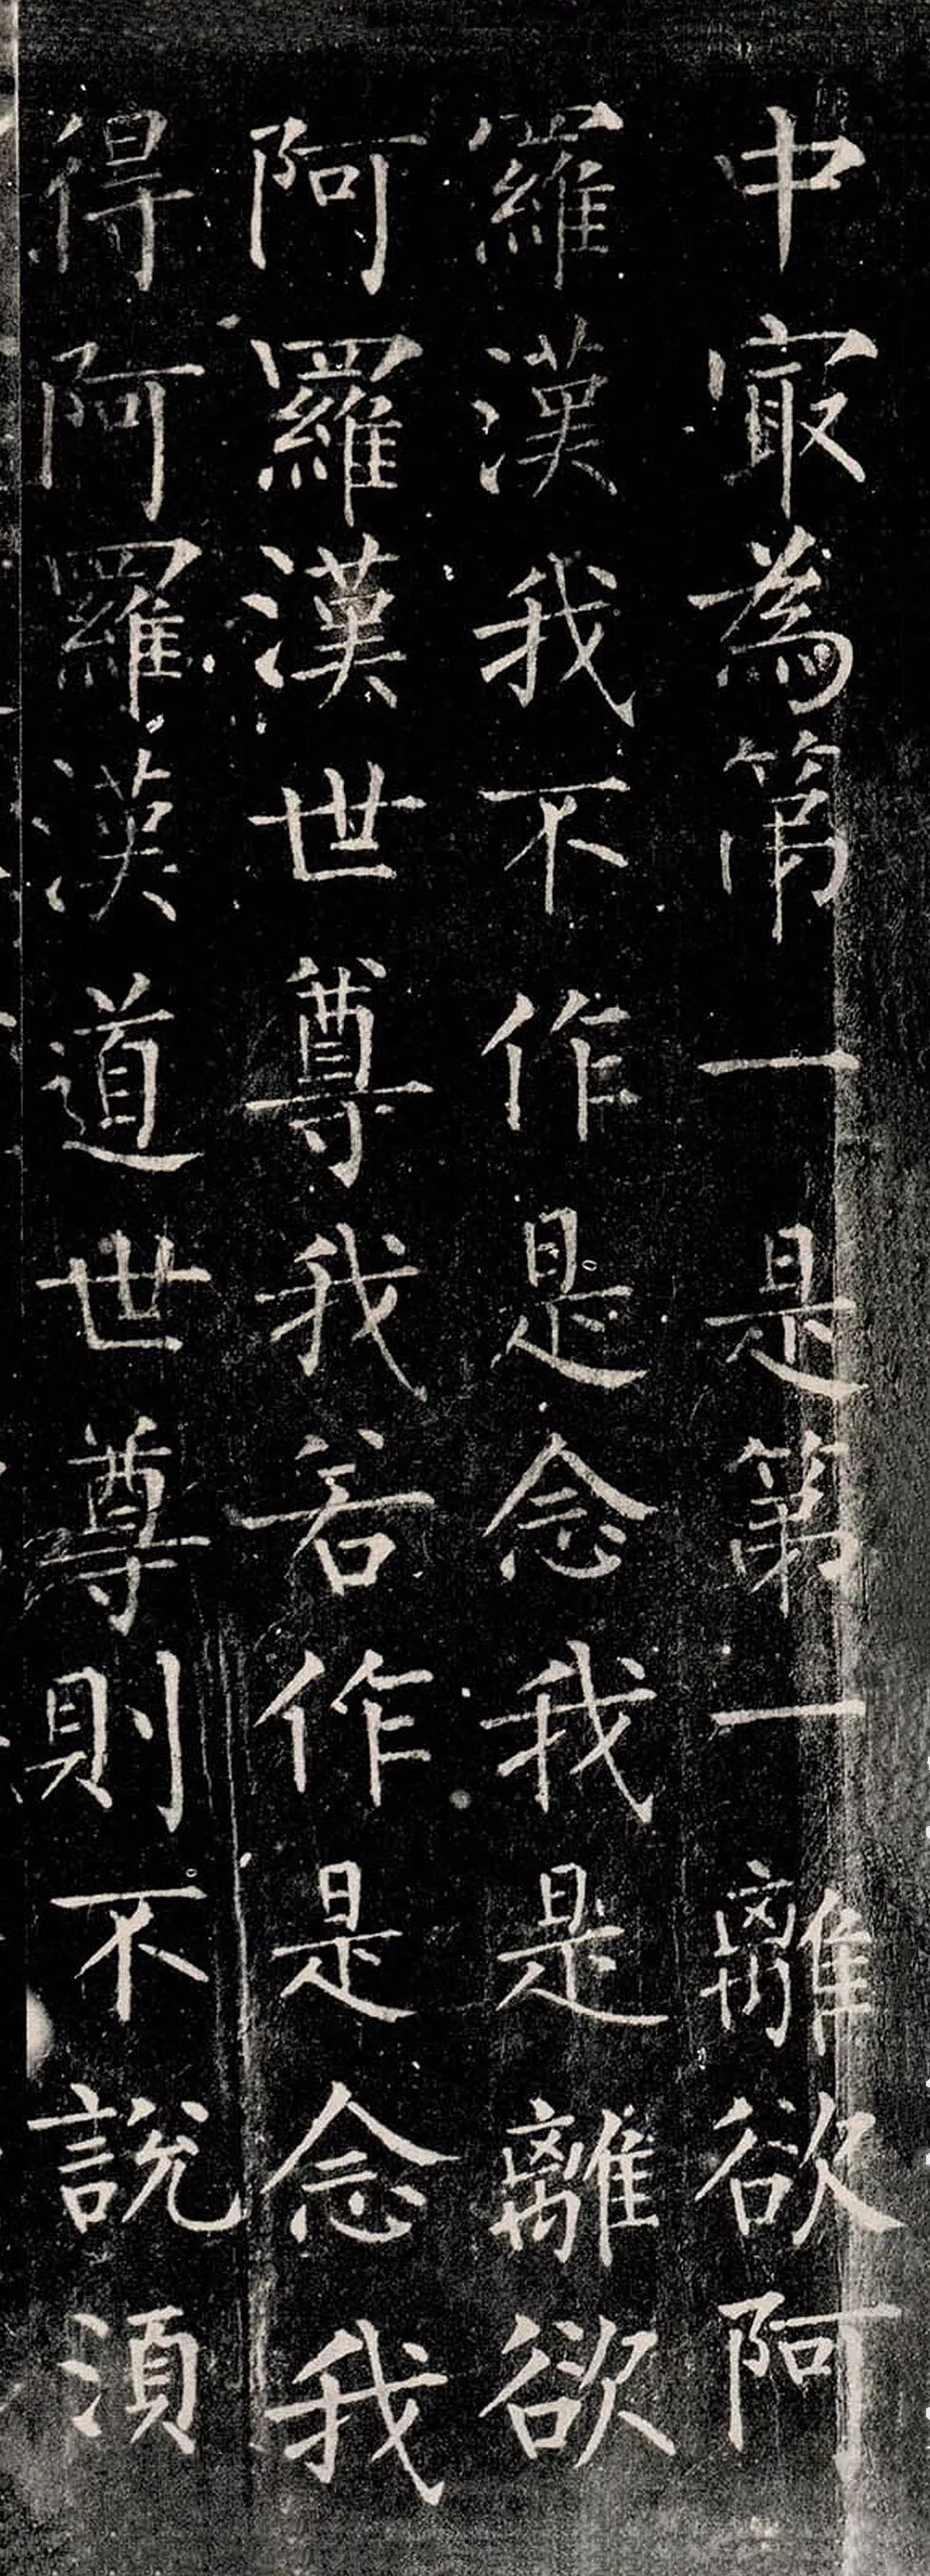 中冣為第一是第一離欲阿
羅漢我不作是念我是離欲
阿羅漢世尊我若作是念我
得阿羅漢道世尊則不說須